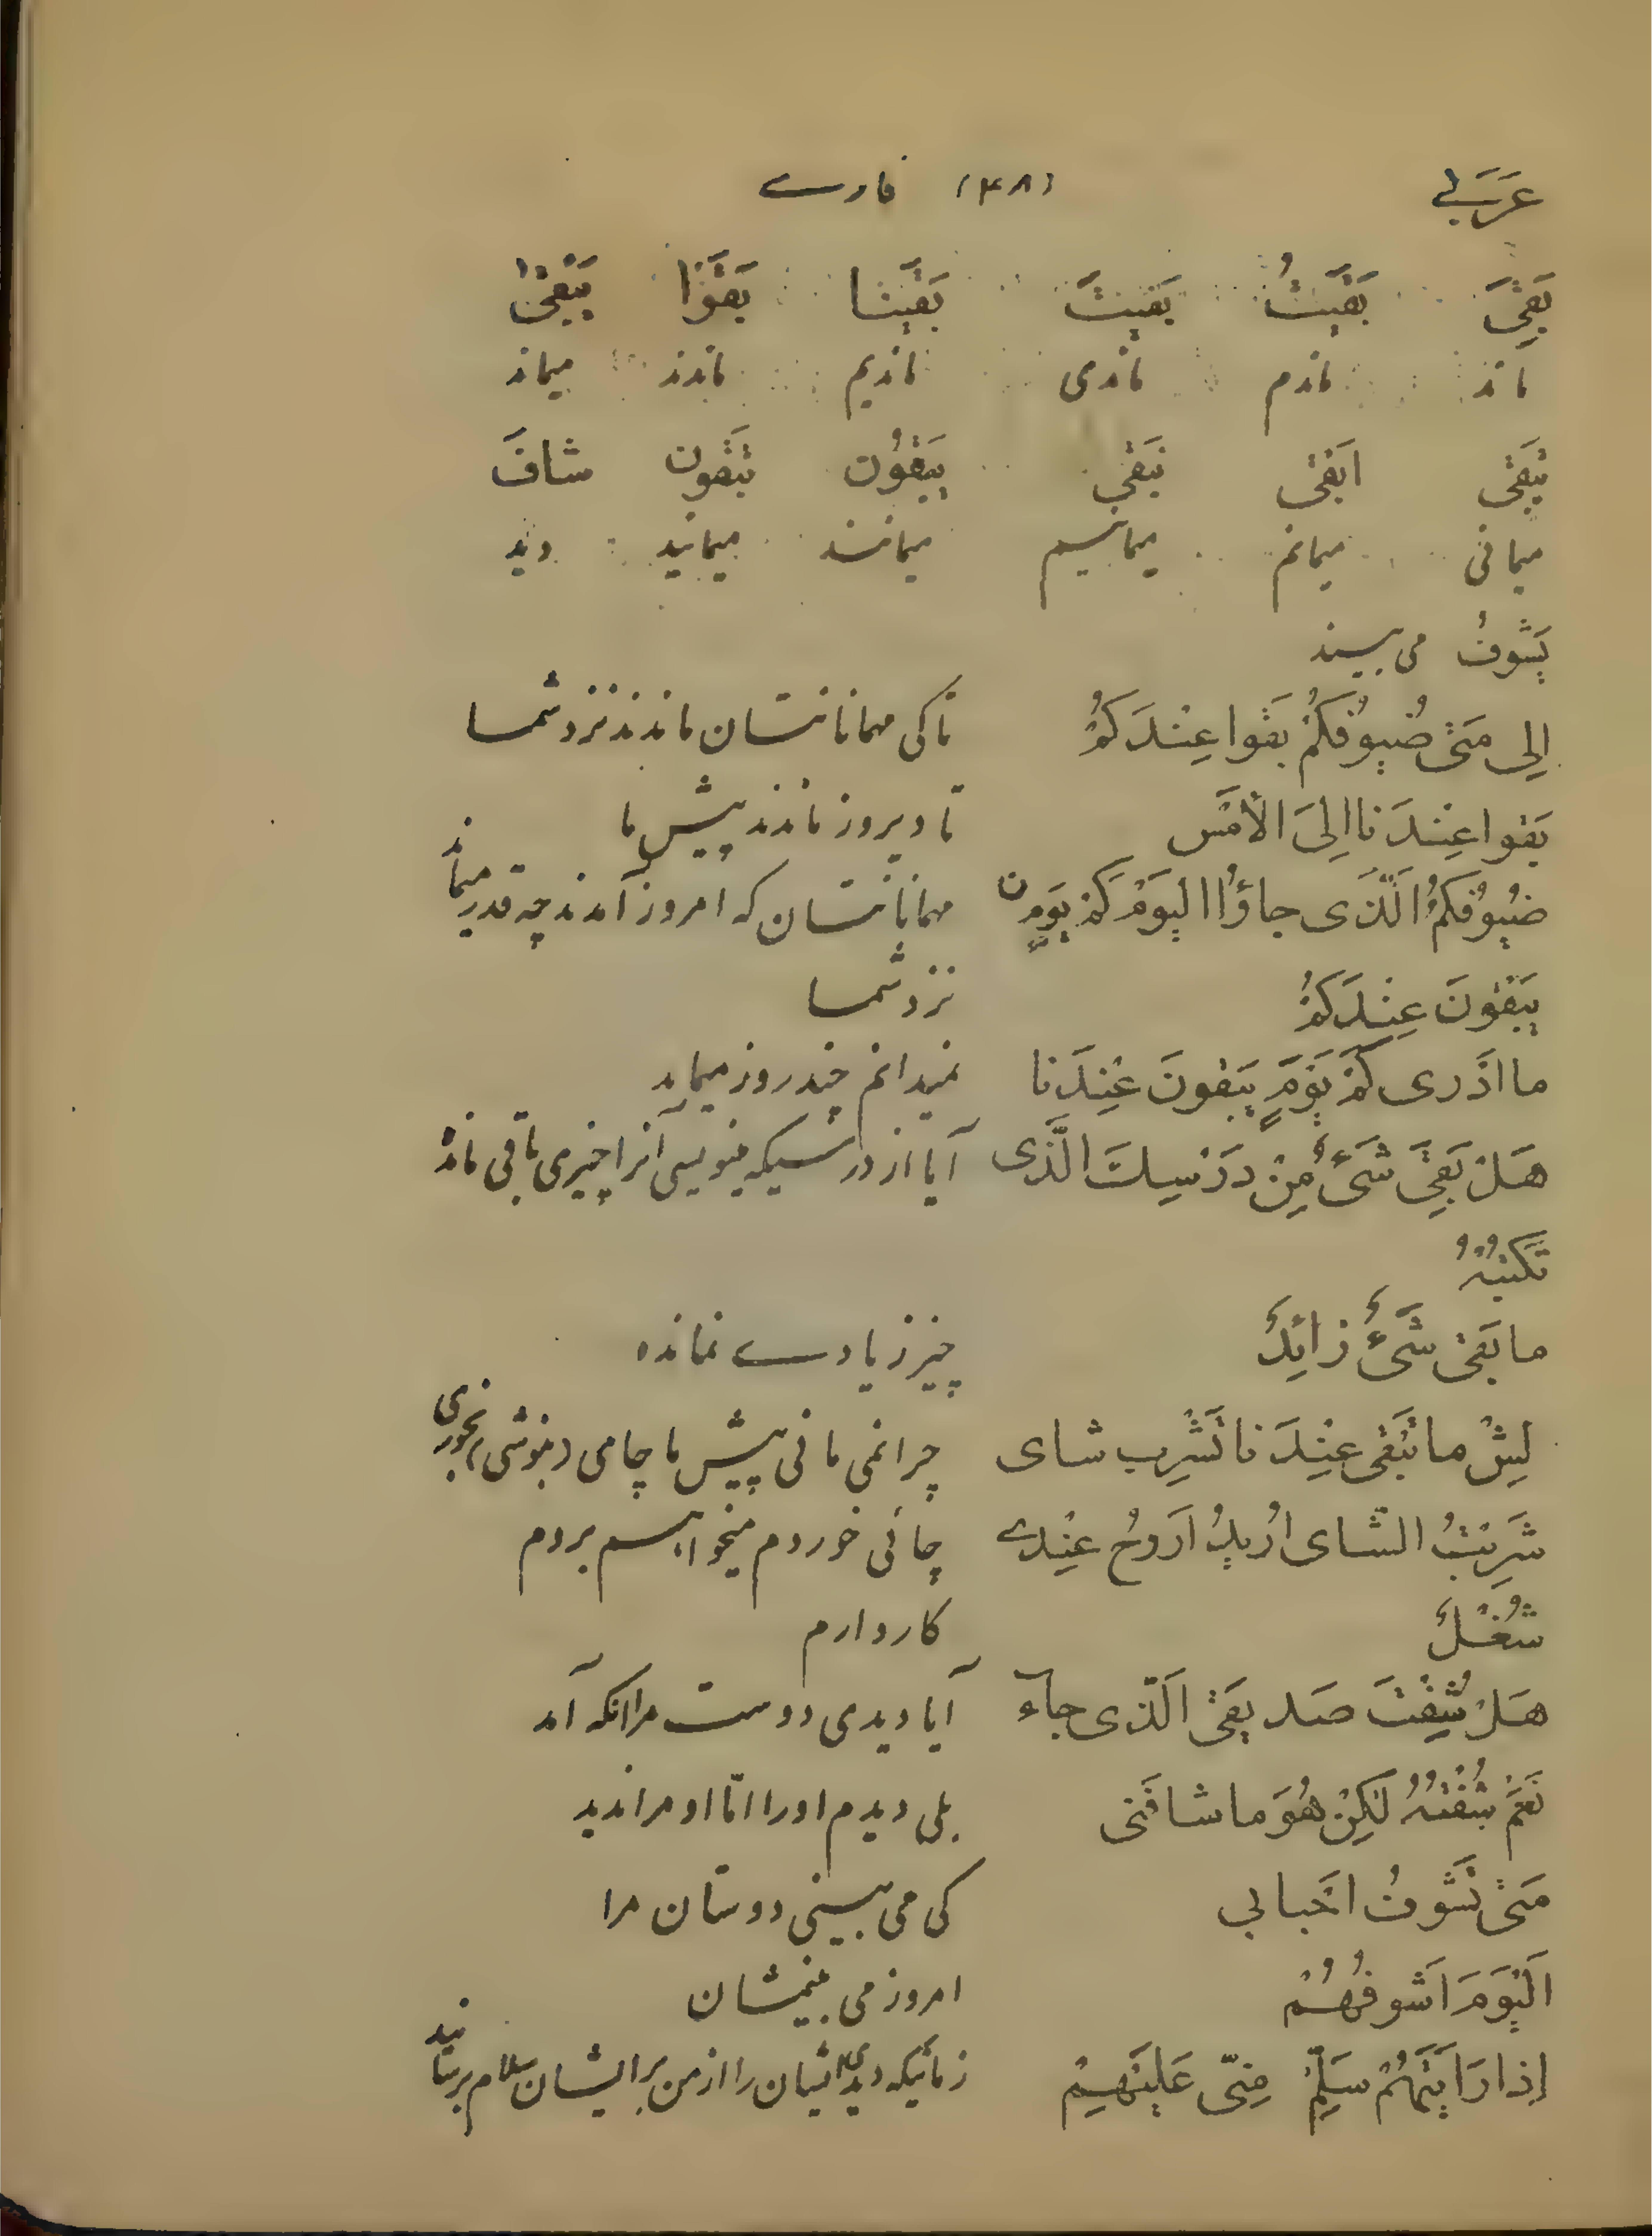 عَرَبی (۴۸) فارسے
بَقِیَ بَقَیتُ بَقَیتَ بَقَینا بَقَوْا یَبْقیٰ
ماند ماندم ماندی ماندیم ماندند میماند
تَبْقیٰ ابَقیٰ نَبْقیٰ یَبْقُون تَبْقون شافَ
میمانی میمانم میمانیم میمانند میمانید دید
یَشوفُ می بیند
اِلی مَتیٰ ضُیوُفکُمْ بَقَوا عِنْدَکُمْ تا کی مهمانانتان ماندند نزد شما
بَقوا عِنْدَنا اِلیَ الأمْس تا دیروز ماندند پیش ما
ضُیوُفکُمْ اَلَّذی جاؤُا الیَوَمْ کَمْ یَوَمٍ مهمانانتان که امروز آمدند چه قدر میمانند
یَبْقَوْنَ عِنْدَکُمْ نزد شما
ما ادَری کَمْ یَوَمٍ یَبْقونَ عِنْدَنا نمیدانم چند روز میمانند
هَلْ بَقِیَ شَیءٌ مِنْ دَرْسِكَ الَّذی آیا از درسیکه مینویسی آنرا چیزی باقی مانده
تَکْتبُهُ
ما بَقیٰ شَیءٌ زائِدٌ چیز زیادے نمانده
لِیشْ ما تَبْقیٰ عِنْدَنا تَشْرِب شای چرا نمی مانی پیش ما چای (بنوشی) بخوری
شَرِبْتُ الشای اُریدُ ارَوحُ عِنْدے چائی خوردم میخواهم بروم
شُغْلٌ کار دارم
هَلْ شِفْتَ صَدیقَیٰ الَّذی جآء آیا دیدی دوست مرا انکه آمد
نَعَمْ شِفْتُهُ لکِنْ هُوَ ما شافَنی بلی دیدم اورا امّا او مرا ندید
مَتیٰ تَشَوفُ احَبابی کی می بینی دوستان مرا
اَلیَوَمَ اَشوفُهُمْ امروز می بینمشان
اِذا رَاَیتَهُمْ سَلِّمْ مِنّی عَلَیْهِمْ زمانیکه دیدی ایشان را از من برایشان سلام برسانید